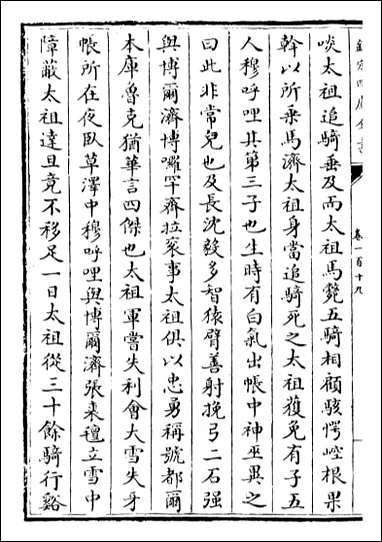 欽定四庫全書
卷一百十九
啖太祖追騎垂及而太祖馬斃五騎相顧駭愕崆根果
幹以所乗馬濟太祖身當追騎死之太祖獲免有子五
人穆呼哩其第三子也生時有白氣出帳中神巫異之
曰此非常兒也及長沈毅多智猿臂善射挽弓二石强
與博爾濟博囉罕齊拉衮事太祖俱以忠勇稱號都爾
本庫魯克猶華言四傑也太祖軍嘗失利㑹大雪失牙
帳所在夜臥草澤中穆呼哩與博爾濟張裘氊立雪中
障蔽太祖達旦竟不移足一日太祖從三十餘騎行谿